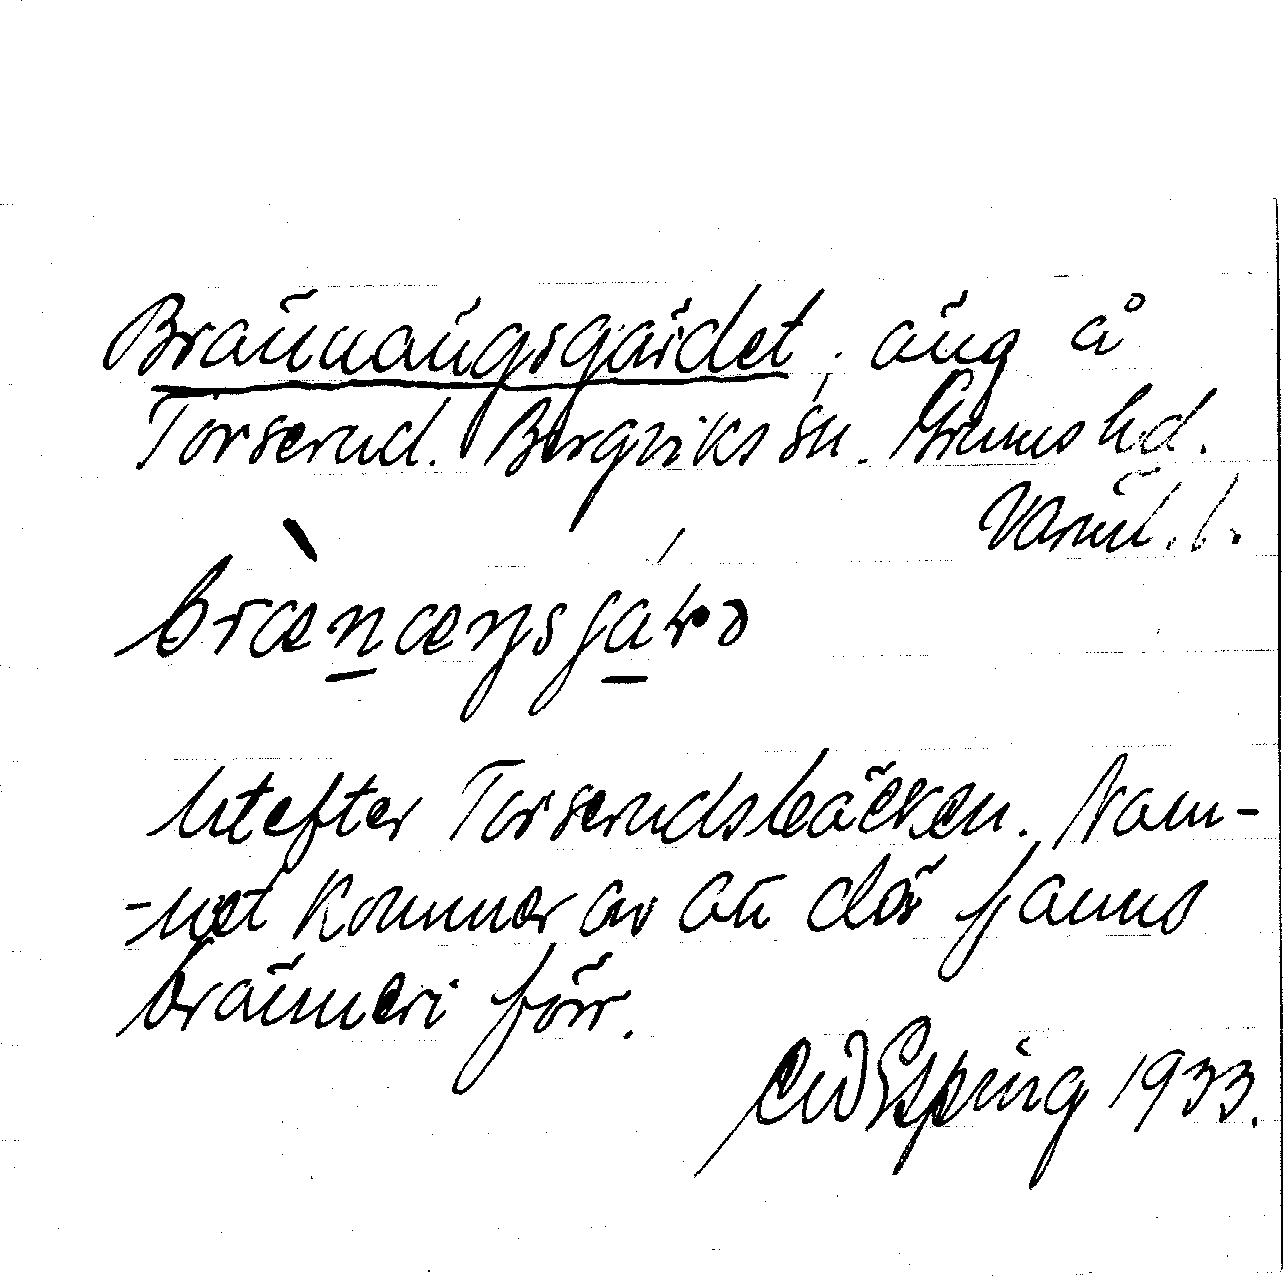 Brännängsgärdet, äng å
Torserud. Borgviks sn. Grums hd.
Värml. l.
brænæŋsjáɽə
Utefter Torserudsbäcken. Nam-
-net kommer av att där fanns
bränneri förr.
Espring 1933.